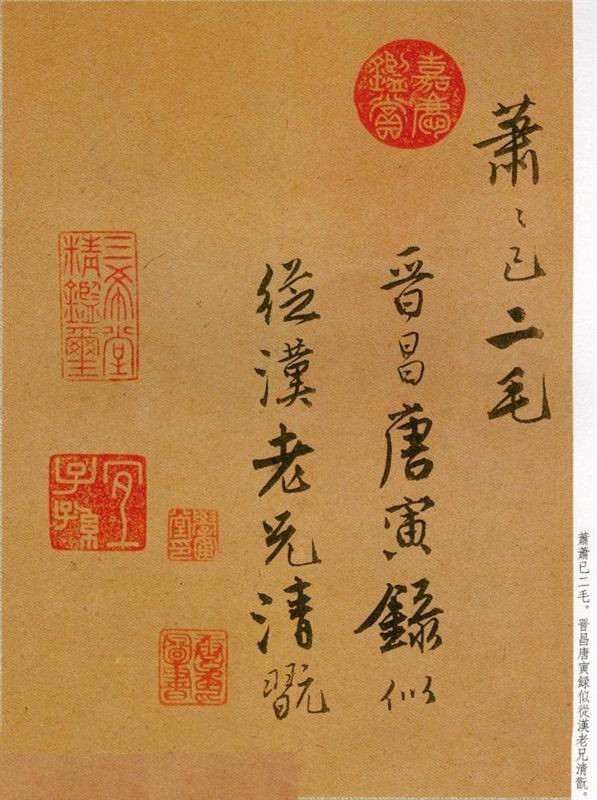 蕭〻已二毛
晉昌唐寅錄似
從漢老兄清翫
嘉慶鑑賞
三希堂精鑑璽
宜子孫
蕭蕭已二毛。晉昌唐寅録似從漢老兄清翫。